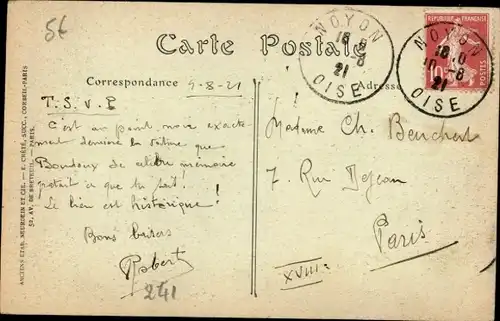 5€
Carte Postale
Correspondance 9-8-21
Adresse
T.S.V.P
C'est au point noir exacte-
ment derrière la voiture que
de célèbre mémoire
ce que tu sait.
Le lieu est historique!
Bons baisers
Robert
241
Madame Ch. Benchert
7, Rue Dejean
Paris
XVIII
NOYON
OISE
18
21
NOYON
OISE
18
21
REPUBLIQUE FRANÇAISE
10
ANCIENS ETAB. NEURDEIN ET CIE. — E. CRÉTÉ, SUCC., CORBEIL-PARIS
52, AV. DE BRETEUIL. — PARIS.